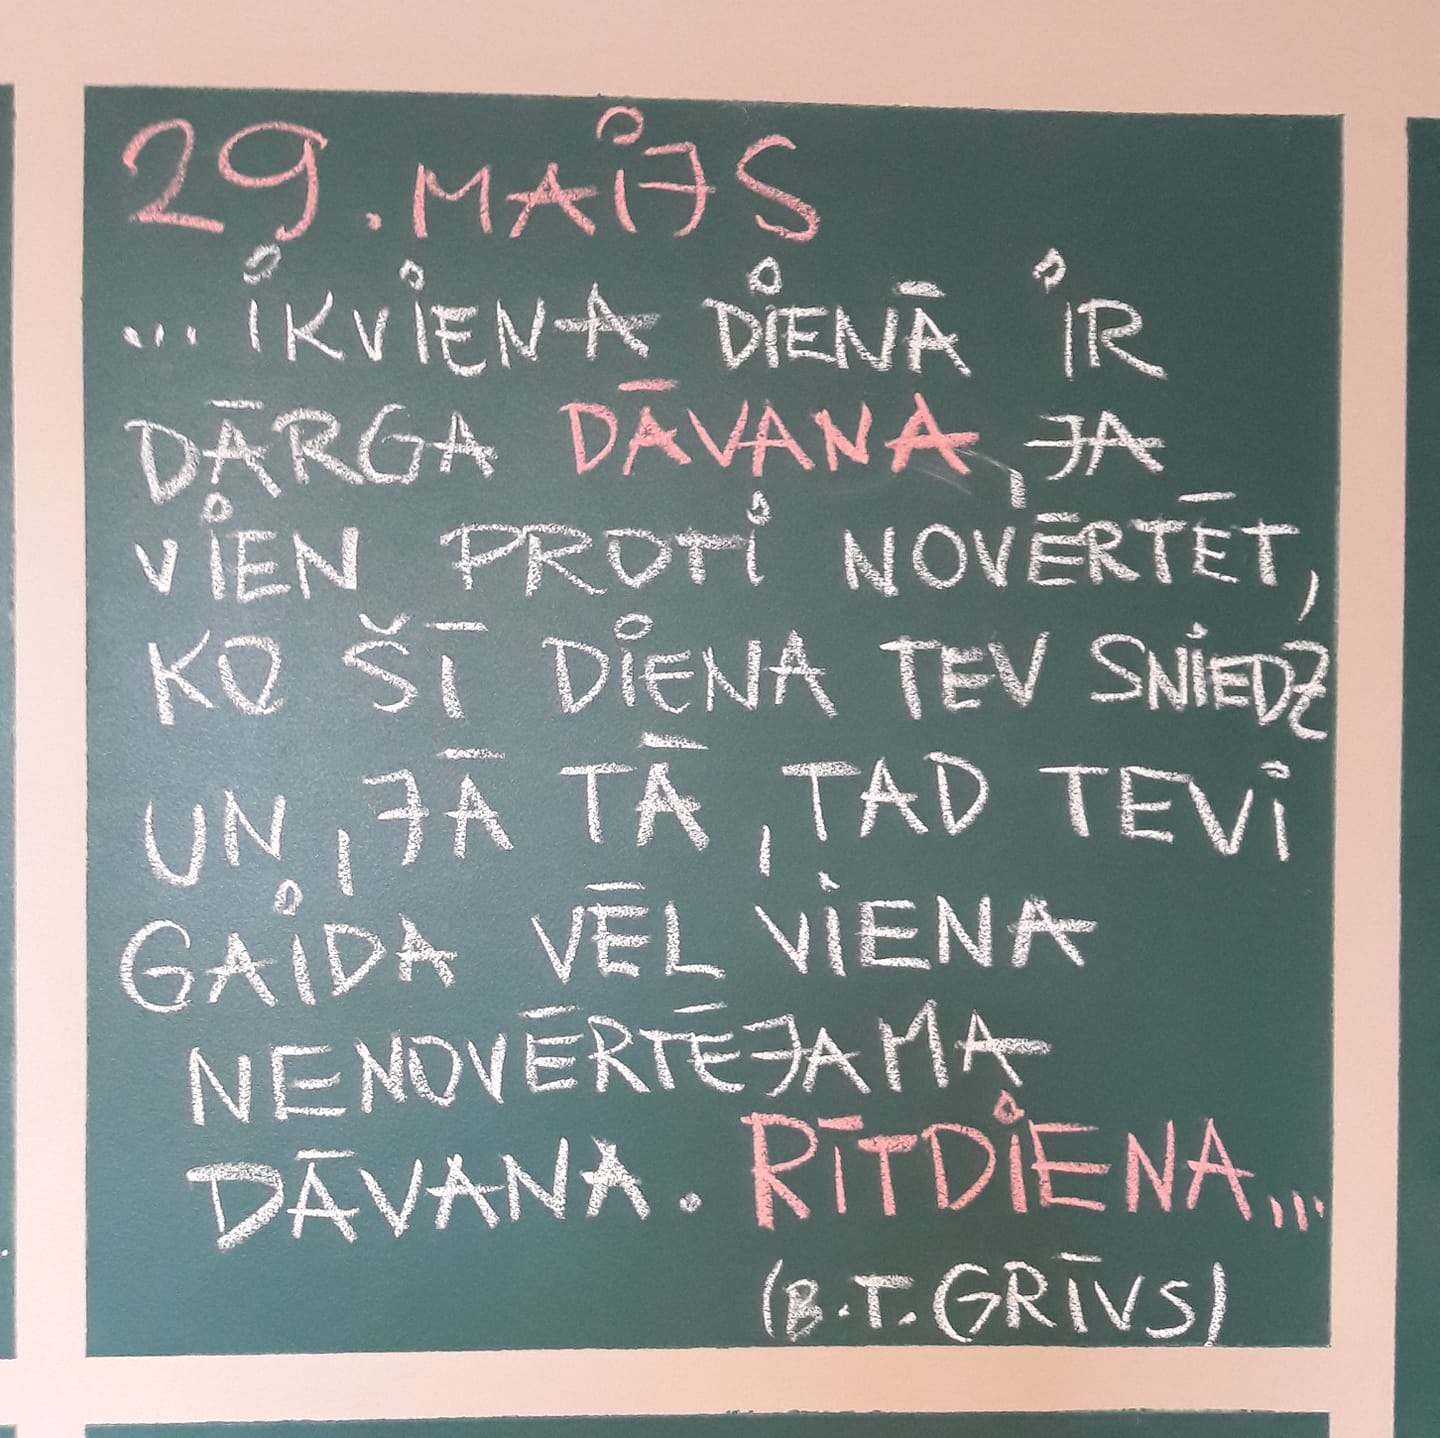 29. MAIJS
... IKVIENA DIENĀ IR
DĀRGA DĀVANA, JA
VIEN PROTI NOVĒRTĒT,
KO ŠĪ DIENA TEV SNIEDZ
UN, JĀ TĀ, TAD TEVI
GAIDA VĒL VIENA
NENOVĒRTĒJAMA
DĀVANA. RĪTDIENA...
(B.T. GRĪVS)